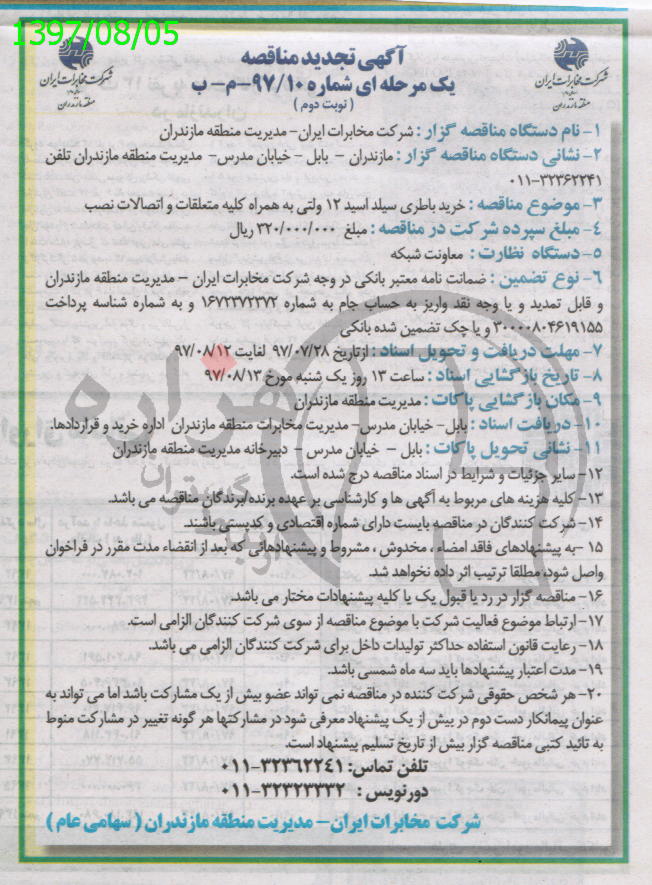 1397/08/05
آگهی تجدید مناقصه
یک مرحله ای شماره ۹۷/۱۰-م- ب
( نوبت دوم )
شرکت مخابرات ایران
منطقه مازندران
شرکت مخابرات ایران
منطقه مازندران
۱- نام دستگاه مناقصه گزار : شرکت مخابرات ایران- مدیریت منطقه مازندران
۲- نشانی دستگاه مناقصه گزار : مازندران - بابل - خیابان مدرس- مدیریت منطقه مازندران تلفن
۰۱۱-۳۲۳۶۲۲۴۱
۳- موضوع مناقصه : خرید باطری سیلد اسید ۱۲ ولتی به همراه کلیه متعلقات و اتصالات نصب
۴- مبلغ سپرده شرکت در مناقصه : مبلغ ۳۲۰/۰۰۰/۰۰۰ ریال
۵- دستگاه نظارت : معاونت شبکه
۶- نوع تضمین : ضمانت نامه معتبر بانکی در وجه شرکت مخابرات ایران - مدیریت منطقه مازندران
و قابل تمدید و یا وجه نقد واریز به حساب جام به شماره ۱۶۷۲۳۷۲۳۷۲ و به شماره شناسه پرداخت
۳۰۰۰۰۸۰۴۶۱۹۱۵۵ و یا چک تضمین شده بانکی
۷- مهلت دریافت و تحویل اسناد : ازتاریخ ۹۷/۰۷/۲۸ لغایت ۹۷/۰۸/۱۲
۸- تاریخ بازگشایی اسناد : ساعت ۱۳ روز یک شنبه مورخ ۹۷/۰۸/۱۳
۹- مکان بازگشایی پاکات : مدیریت منطقه مازندران
۱۰- دریافت اسناد : بابل- خیابان مدرس- مدیریت مخابرات منطقه مازندران اداره خرید و قراردادها.
۱۱- نشانی تحویل پاکات : بابل - خیابان مدرس - دبیرخانه مدیریت منطقه مازندران
۱۲- سایر جزئیات و شرایط در اسناد مناقصه درج شده است.
۱۳- کلیه هزینه های مربوط به آگهی ها و کارشناسی بر عهده برنده/برندگان مناقصه می باشد.
۱۴- شرکت کنندگان در مناقصه بایست دارای شماره اقتصادی و کدپستی باشند.
۱۵ -به پیشنهادهای فاقد امضاء ، مخدوش ، مشروط و پیشنهادهائی که بعد از انقضاء مدت مقرر در فراخوان
واصل شود، مطلقا ترتیب اثر داده نخواهد شد.
۱۶- مناقصه گزار در رد یا قبول یک یا کلیه پیشنهادات مختار می باشد.
۱۷- ارتباط موضوع فعالیت شرکت با موضوع مناقصه از سوی شرکت کنندگان الزامی است.
۱۸- رعایت قانون استفاده حداکثر تولیدات داخل برای شرکت کنندگان الزامی می باشد.
۱۹- مدت اعتبار پیشنهادها باید سه ماه شمسی باشد.
۲۰- هر شخص حقوقی شرکت کننده در مناقصه نمی تواند عضو بیش از یک مشارکت باشد اما می تواند به
عنوان پیمانکار دست دوم در بیش از یک پیشنهاد معرفی شود در مشارکتها هر گونه تغییر در مشارکت منوط
به تائید کتبی مناقصه گزار بیش از تاریخ تسلیم پیشنهاد است.
تلفن تماس: ۳۲۳۶۲۲۴۱-۰۱۱
دورنویس : ۳۲۳۲۳۳۳۲-۰۱۱
شرکت مخابرات ایران- مدیریت منطقه مازندران ( سهامی عام )
هزاره